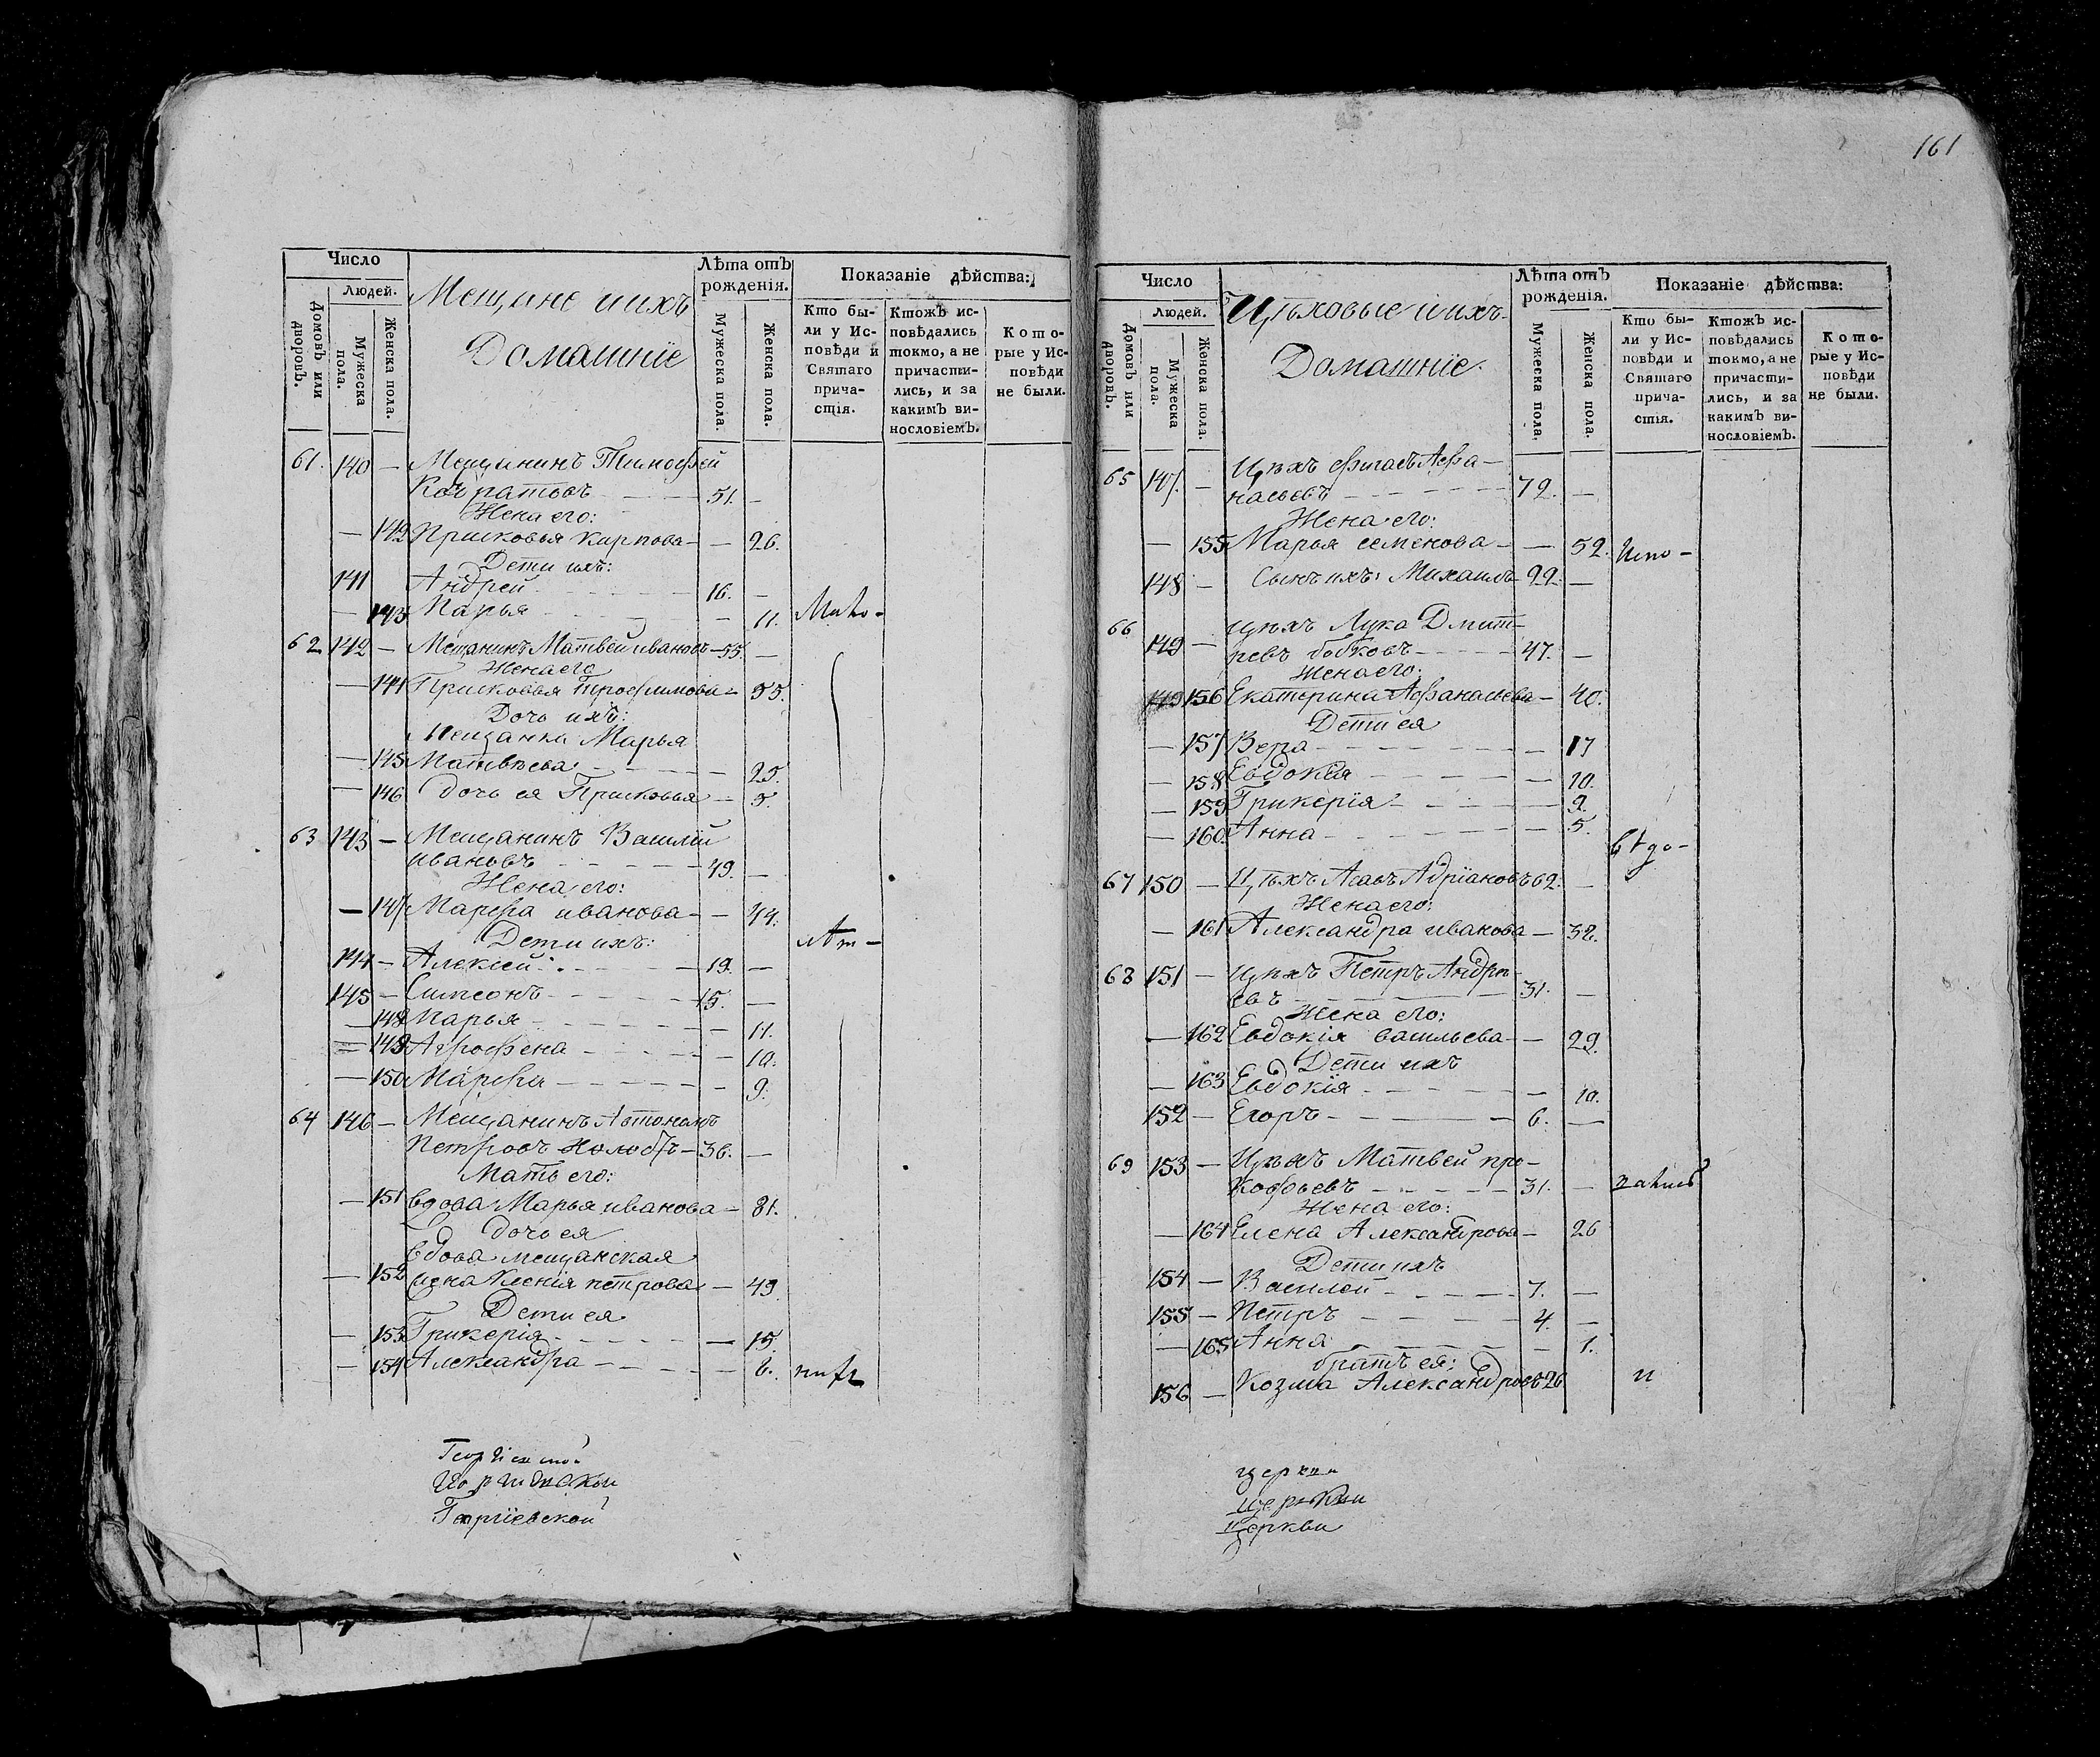 Число
Людей.
Домовъ или дворовъ.
Мужеска пола.
Женска пола.
Мещане и ихъ
Домашнїе
Лѣта отъ рожденїя.
Мужеска пола.
Женска пола.
Показанїе дѣйства:
Кто были у Исповѣди и Святаго причастїя.
Ктожъ исповѣдались токмо, а не причастились, и за какимъ винословїемъ.
Которые у Исповѣди не были.
61. 140 — Мещанинъ Тимофей
Кондратьевъ — 51. —
Жена его:
— 142 Прасковья Карпова — — 26.
Дети ихъ:
141 Андрей — 16. —
— 143 Марья — 11.
62 142 — Мещанинъ Матвей ивановъ — 55. —
Жена его
— 144 Прасковья Трофимова — 55.
Дочь ихъ:
Мещанка Марья
— 145 Матвѣева — 25.
— 146 дочь ея Прасковья — 5.
63 143 — Мещанинъ Василей
ивановъ — 49. —
Жена его:
— 147 Марфа иванова — — 44.
Дети ихъ:
144 — Алексей — 19. —
145 — Симеонъ — 15. —
— 148 Марья — 11.
— 149 Агрофена — 10.
— 150 Марфа — 9.
64 146 — Мещанинъ Автономъ
Петровъ — 36. —
Мать его:
— 151 вдова Марья иванова — 81.
дочь ея
вдова мещанская
— 152 жена Ксенїя петрова — 49.
Дети ея
— 153 Гликерїя — 15.
— 154 Александра — 6.
Георгїевской
Георгїевской
161
Число
Людей.
Домовъ или дворовъ.
Мужеска пола.
Женска пола.
Цѣховые и ихъ
Домашнїе.
Лѣта отъ рожденїя.
Мужеска пола.
Женска пола.
Показанїе дѣйства:
Кто были у Исповѣди и Святаго причастїя.
Ктожъ исповѣдались токмо, а не причастились, и за какимъ винословїемъ.
Которые у Исповѣди не были.
65 147 — Цѣхъ Афа-
насьевъ — 72. —
Жена его:
— 155 Марья семенова — — 52.
148 — Сынъ ихъ: Михаилъ 22. —
66
149 — цѣхъ Лука Дмит-
ревъ бобковъ — 47. —
Жена его:
156 Екатерина Афанасьева — 40.
Дети ея
— 157 Вера — — 17
— 158 Евдокїя — — 10.
— 159 Гликерїя — — 9.
— 160 Анна — — 5.
67 150 — Цѣхъ Адрїановъ 62. —
Жена его:
— 161 Александра иванова — 32.
68 151 — цѣхъ Петръ Андре-
евъ — 31. —
Жена его:
— 162 Евдокїя васильева — — 29.
Дети ихъ
— 163 Евдокїя — — 10.
152 — Егоръ — 6. —
69 153 — Цѣхъ Матвей про-
кофьевъ — 31. —
Жена его:
— 164 Елена Александрова — 26
Дети ихъ
154 — Василей — 7. —
155 — Петръ — 4. —
— 165 Анна — — 1.
братъ ея:
156 — Козма Александровъ 26 и
церкви
церкви
церкви